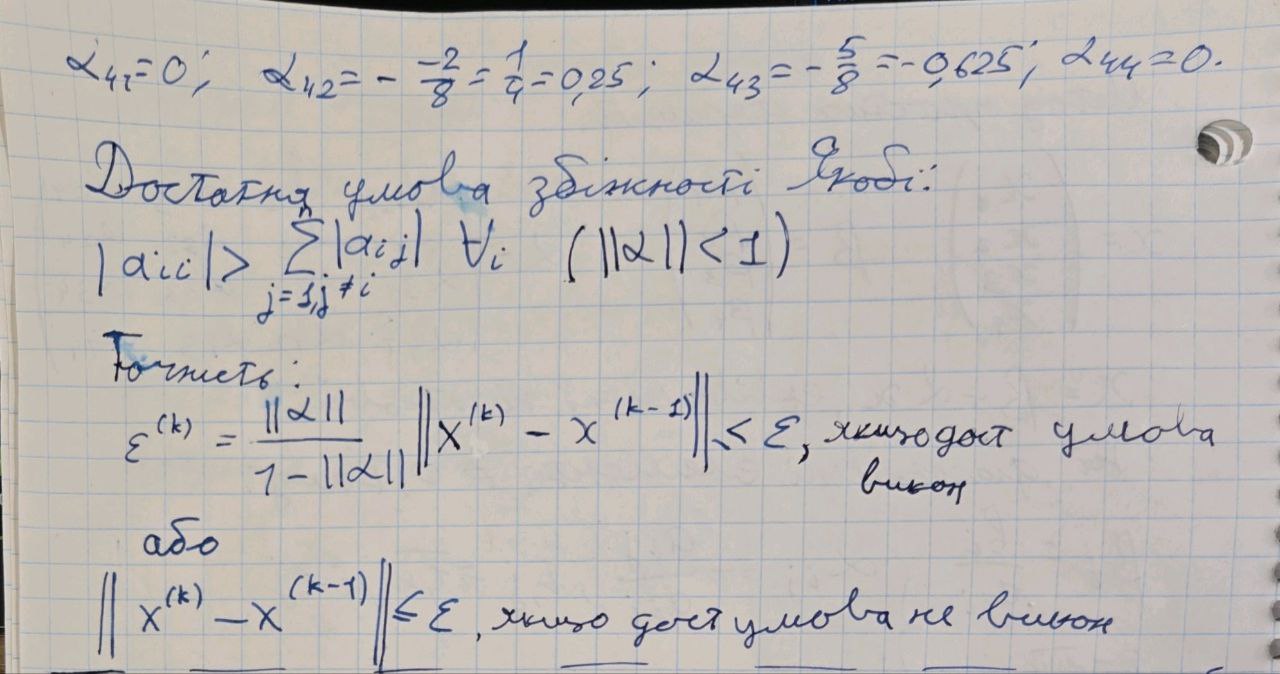 α₄₁ = 0; α₄₂ = - -2/8 = 1/4 = 0,25; α₄₃ = - 5/8 = -0,625; α₄₄ = 0.
Достатня умова збіжності Якобі:
|aᵢᵢ| > ∑ⁿ_{j=1, j≠i} |aᵢⱼ| ∀i (||α|| < 1)
Точність:
ε^(k) = ||α|| / (1 - ||α||) ||x^(k) - x^(k-1)|| ≤ ε, якщо дост умова
викон
або
||x^(k) - x^(k-1)|| ≤ ε, якщо дост умова не викон